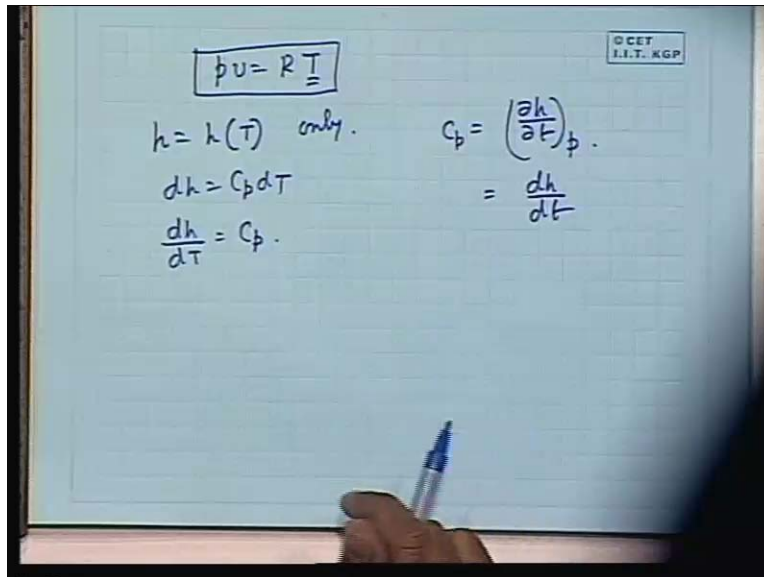 © CET
I.I.T. KGP
pv = RT
h = h(T) only.
dh = CpdT
dh/dT = Cp.
Cp = (∂h/∂t)p.
= dh/dt